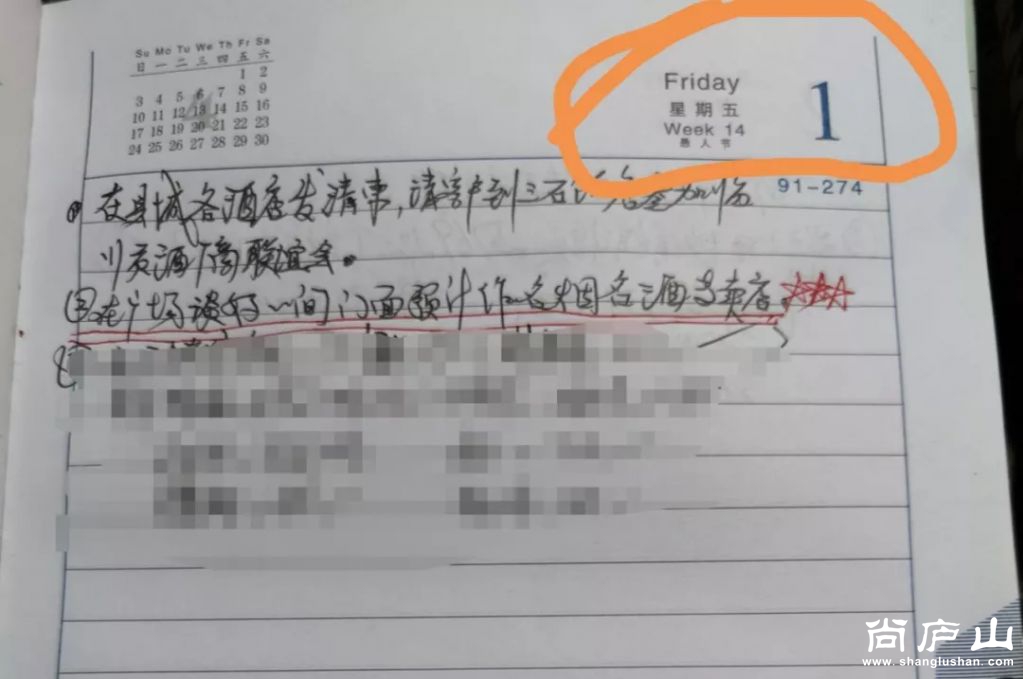 Su Mo Tu We Th Fr Sa
日 一 二 三 四 五 六
1 2
3 4 5 6 7 8 9
10 11 12 13 14 15 16
17 18 19 20 21 22 23
24 25 26 27 28 29 30
Friday
星期五
Week 14
愚人节
1
91-274
在县城各酒店发请柬,请客户到三石
川贡酒厂商联谊会。
在广场谈好一间门面预计作名烟名酒专卖店
尚庐山
www.shanglushan.com